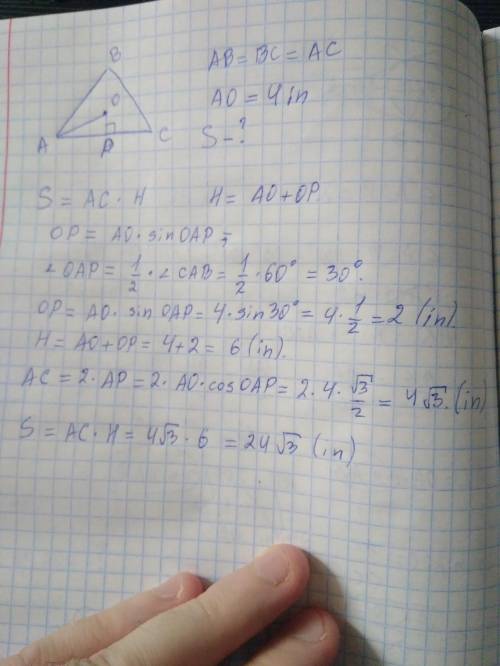 B
O
A
P
C
AB = BC = AC
AO = 4 in
S - ?
S = AC · H
H = AO + OP.
OP = AO · sin OAP = ;
∠OAP = 1/2 · ∠CAB = 1/2 · 60° = 30°.
OP = AO · sin OAP = 4 · sin 30° = 4 · 1/2 = 2 (in).
H = AO + OP = 4 + 2 = 6 (in).
AC = 2 · AP = 2 · AO · cos OAP = 2 · 4 · √3/2 = 4√3. (in)
S = AC · H = 4√3 · 6 = 24√3 (in)